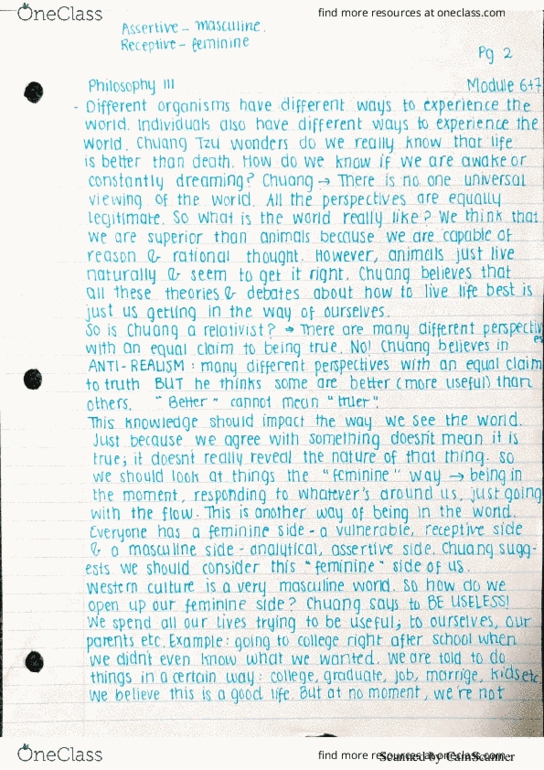 OneClass
find more resources at oneclass.com
Assertive - masculine.
Receptive - feminine
Pg 2
Philosophy III
Module 6+7
- Different organisms have different ways to experience the
world. Individuals also have different ways to experience the
world. Chuang Tzu wonders do we really know that life
is better than death. How do we know if we are awake or
constantly dreaming? Chuang → There is no one universal
viewing of the world. All the perspectives are equally
legitimate. So what is the world really like? We think that
we are superior than animals because we are capable of
reason & rational thought. However, animals just live
naturally & seem to get it right. Chuang believes that
all these theories & debates about how to live life best is
just us getting in the way of ourselves.
So is Chuang a relativist? → There are many different perspectives
with an equal claim to being true. No! Chuang believes in
ANTI-REALISM: many different perspectives with an equal claim
to truth BUT he thinks some are better (more useful) than
others. "Better" cannot mean "truer".
This knowledge should impact the way we see the world.
Just because we agree with something doesn't mean it is
true; it doesnt really reveal the nature of that thing. So
we should look at things the "feminine" way → being in
the moment, responding to whatever's around us, just going
with the flow. This is another way of being in the world.
Everyone has a feminine side - a vulnerable, receptive side
& a masculine side - analytical, assertive side. Chuang sugg-
ests we should consider this "feminine" side of us.
Western culture is a very masculine world. So how do we
open up our feminine side? Chuang says to BE USELESS!
We spend all our lives trying to be useful; to ourselves, our
parents etc. Example: going to college right after school when
we didn't even know what we wanted. We are told to do
things in a certain way: college, graduate, job, marrige, kids etc
We believe this is a good life. But at no moment, we're not
OneClass
find more resources at oneclass.com
Scanned by CamScanner